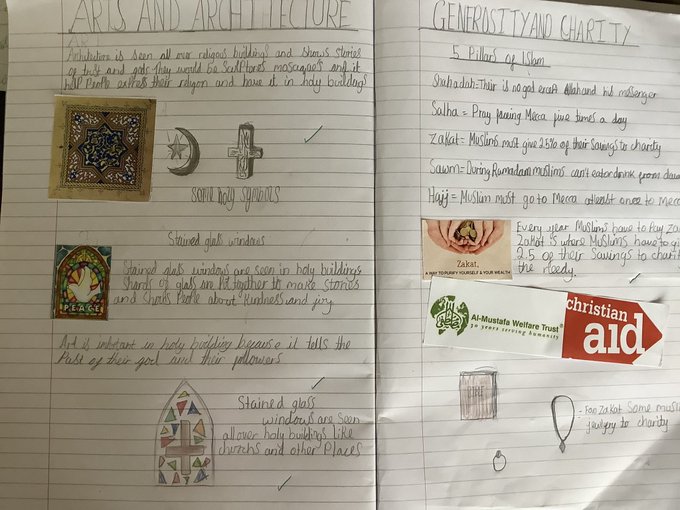 ARTS AND ARCHITECTURE
Architecture is seen all over religous buildings and shows stories
of trust and gods they would be sculptures mosaques and it
help People extress their religon and have it in holy buildings
some holy symbols
Stained glass windows
Stained glass windows are seen in holy buildings
Shards of glass are Put together to make stories
and shows People about kindness and
PEACE
Art is imbortant in holy building because it tells the
Past of their god and their followers
Stained glass
windows are seen
all over holy buildings like
churchs and other Places
GENEROSITY AND CHARITY
5 Pillars of Islam
Shahadah = Their is no god Allah and his messenger
Salha = Pray facing Mecca five times a day
Zakat = Muslims must give 2.5% of their savings to charity
Sawm = During Ramadam muslims can't eat or drink from
Hajj = Muslim must go to Mecca atleast once
Zakat,
A WAY TO PURIFY YOURSELF & YOUR WEALTH
Every year Muslims have to Pay
Zakat is where Muslims have to
2.5 of their Savings to
the needy.
Al-Mustafa Welfare Trust
30 years serving humanity
christian
aid
BIBLE
- For Zakat Some
jewlery to charity